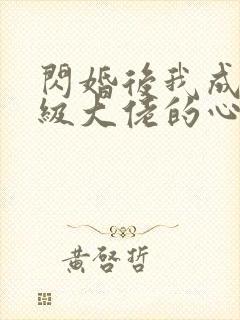 閃婚後我成
級大佬的心
黃啓哲